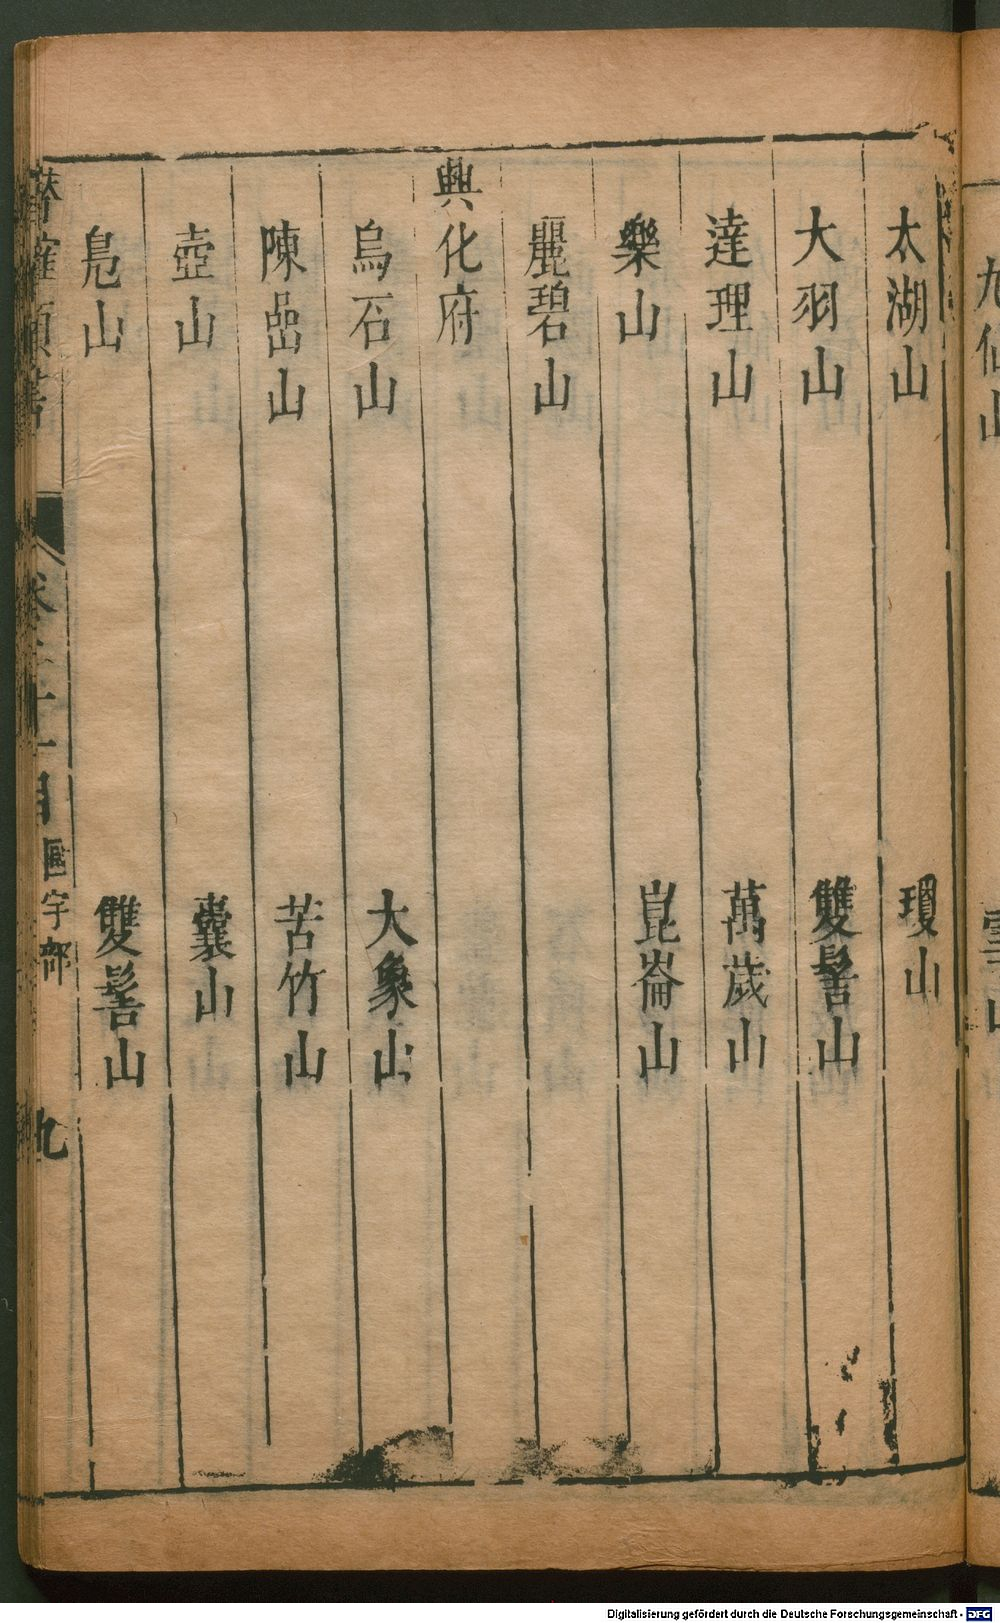 九仙山
太湖山　瓊山
大羽山　雙髻山
達理山　萬歲山
樂山　崑崙山
麗碧山
興化府
烏石山　大象山
陳嵒山　苦竹山
壺山　囊山
鳧山　雙髻山
卷之十一目　區宇部　九
Digitalisierung gefördert durch die Deutsche Forschungsgemeinschaft - DFG